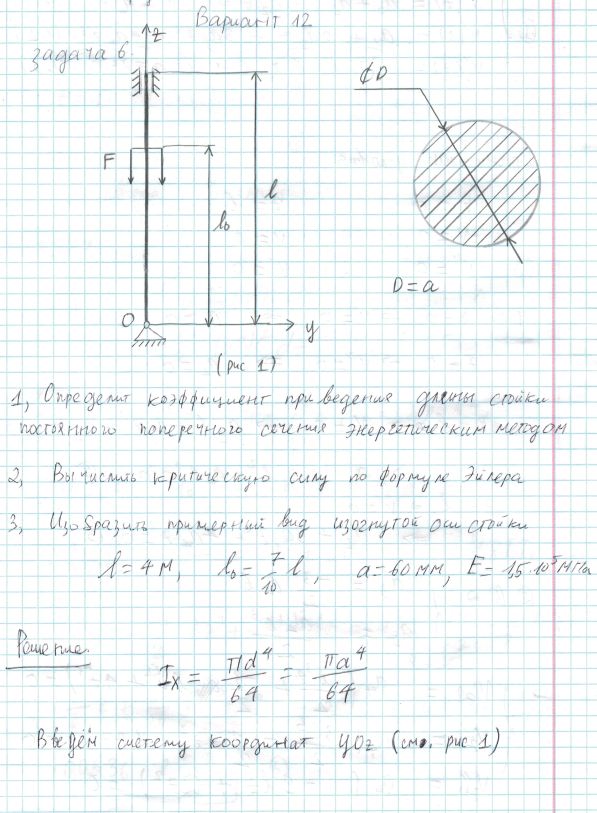 Вариант 12
Задача 6.
z
₵D
F
l
l₀
D = a
O
y
(рис 1)
1, Определит коэффициент приведения длины стойки
постоянного поперечного сечения энергетическим методом
2, Вычислить критическую силу по формуле Эйлера
3, Изобразить примерный вид изогнутой оси стойки
l = 4 м, l₀ = 7/10 l, a = 60 мм, E = 1,5·10⁵ МПа
Решение.
Iₓ = πd⁴/64 = πa⁴/64
Введём систему координат yOz (см. рис 1)